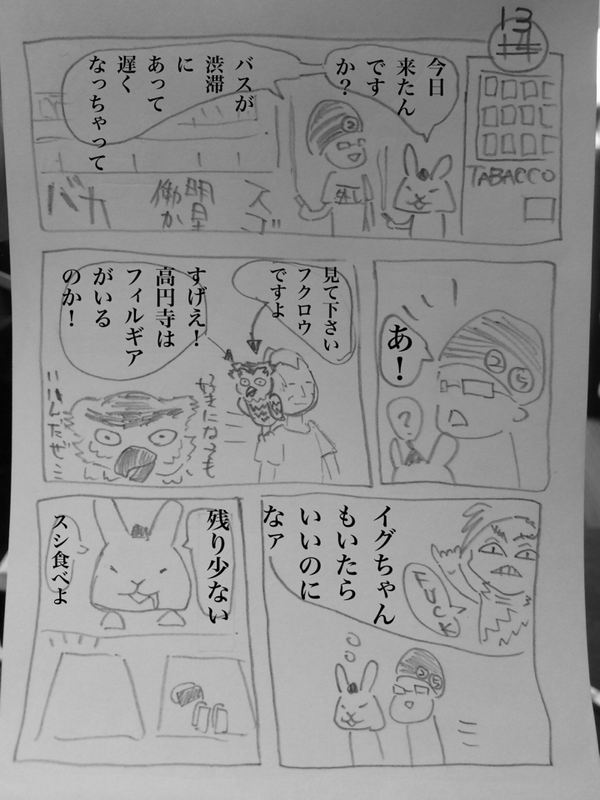 13
14
今日
来たん
です
か？
バスが
渋滞
に
あって
遅く
なっちゃって
TABACCO
バカ
働か
明星
スゴ
②
あ！
②⑤
？
見て下さい
フクロウ
ですよ
すげえ！
高円寺は
フィルギア
がいる
のか！
好きになっても
いいんだぜ
イグちゃん
もいたら
いいのに
なァ
FUCK
②⑤
残り少ない
スシ食べよ